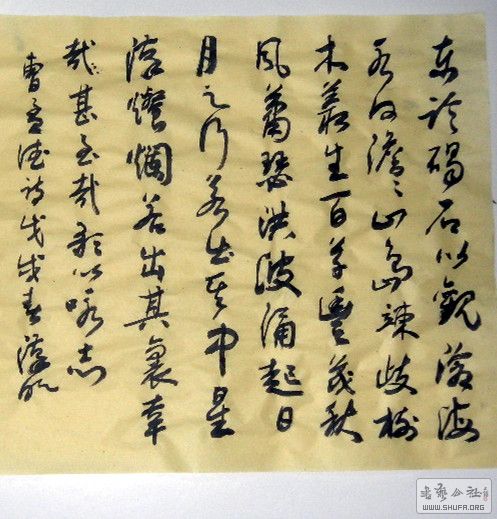 东临碣石以觀滄海
水何澹々山島竦峙樹
木叢生百草豐茂秋
風蕭瑟洪波涌起日
月之行若出其中星
漢燦爛若出其裏幸
哉甚至哉歌以咏志
曹孟德诗戊戌春漢
书艺公社
WWW.SHUFA.ORG